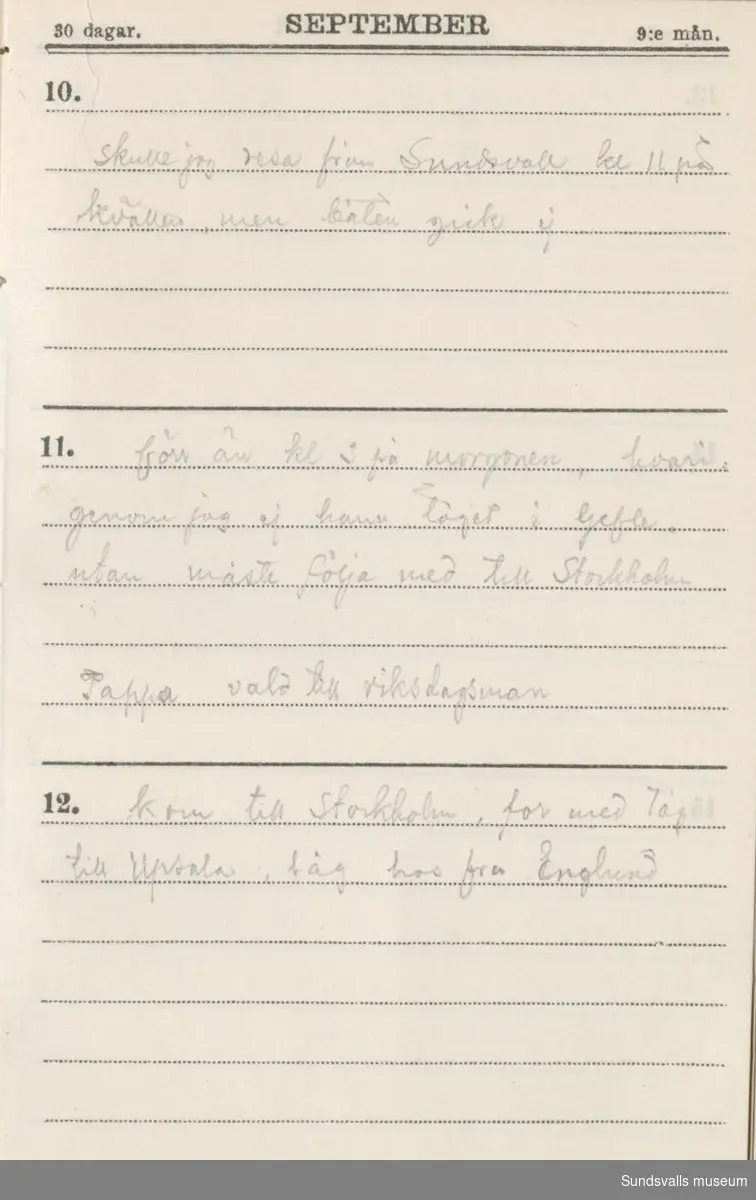 30 dagar. SEPTEMBER 9:e mån.
10.
skulle jag resa från Sundsvall kl 11 på
kvällen, men båten gick ej
11. förr än kl 3 på morgonen, hvari-
genom jag ej hann tåget i Gefle,
utan måste följa med till Stockholm
Pappa vald till riksdagsman
12. kom till Stockholm, for med tåg
till Upsala, låg hos fru Englund
Sundsvalls museum